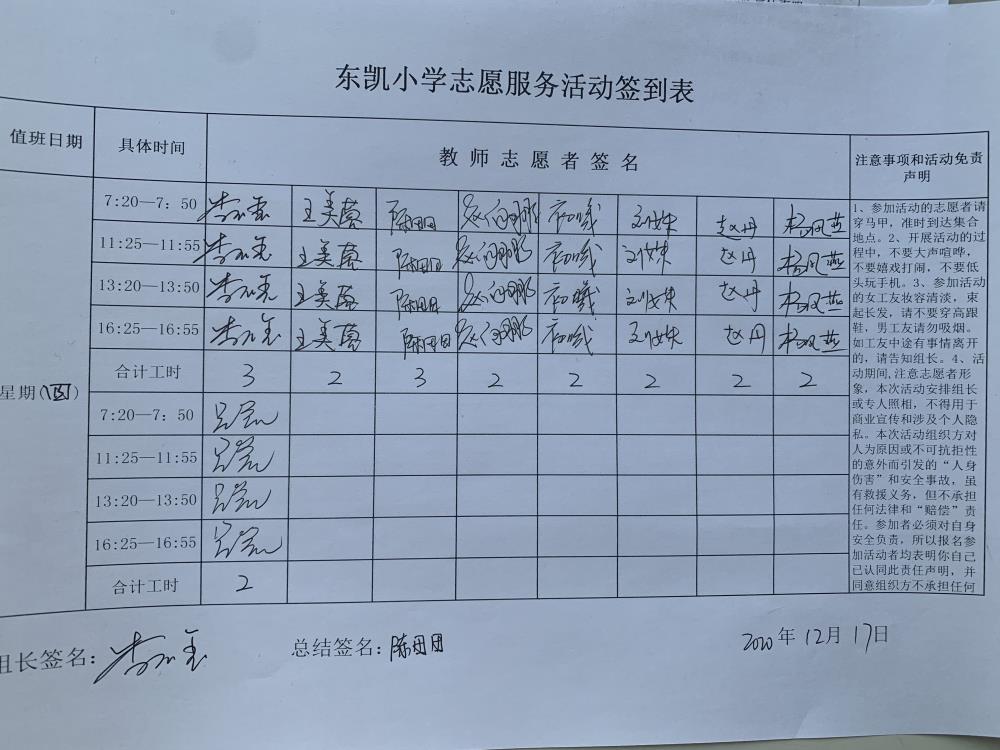 东凯小学志愿服务活动签到表
值班日期 具体时间 教师志愿者签名 注意事项和活动免责声明
7:20—7：50 王美蓉 陈田田 刘姝 赵丹 杨凤燕
11:25—11:55 王美蓉 陈田田 刘姝 赵丹 杨凤燕
13:20—13:50 王美蓉 陈田田 刘姝 赵丹 杨凤燕
16:25—16:55 王美蓉 陈田田 刘姝 赵丹 杨凤燕
合计工时 3 2 3 2 2 2 2 2
星期(四)
7:20—7：50
11:25—11:55
13:20—13:50
16:25—16:55
合计工时 2
1、参加活动的志愿者请
穿马甲，准时到达集合
地点。2、开展活动的过
程中，不要大声喧哗，
不要嬉戏打闹，不要低
头玩手机。3、参加活动
的女工友妆容清淡，束
起长发，请不要穿高跟
鞋，男工友请勿吸烟。
如工友中途有事情离开
的，请告知组长。4、活
动期间,注意志愿者形
象，本次活动安排组长
或专人照相，不得用于
商业宣传和涉及个人隐
私。本次活动组织方对
人为原因或不可抗拒性
的意外而引发的“人身
伤害”和安全事故，虽
有救援义务，但不承担
任何法律和“赔偿”责
任。参加者必须对自身
安全负责，所以报名参
加活动者均表明你自己
已认同此责任声明，并
同意组织方不承担任何
组长签名： 总结签名：陈田田 2020年12月17日